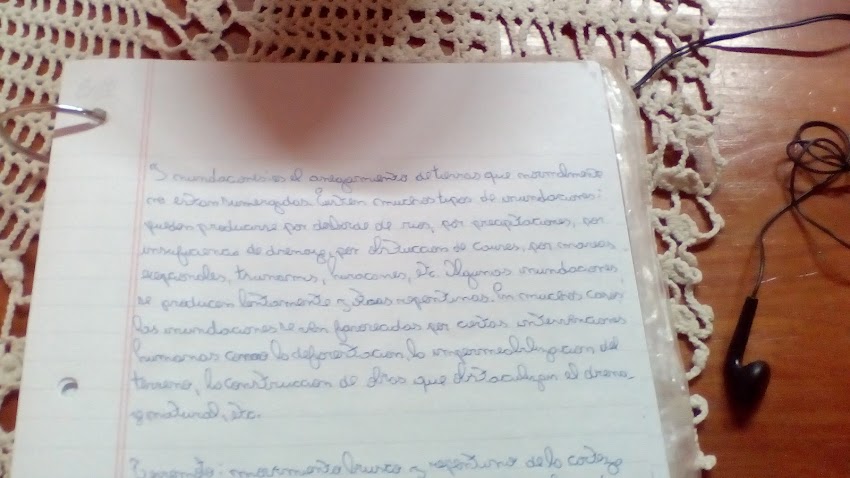 Inundaciones: es el anegamiento de tierras que normalmente
no estan sumergidas. Existen muchos tipos de inundaciones:
pueden producirse por desborde de rios, por precipitaciones, por
insuficiencia de drenaje, por obstuccion de cauces, por mareas
excepcionales, trunamis, huracanes, etc. Algunas inundaciones
se producen lentamente y otras repentinas. En muchos casos
las inundaciones se ven favorecidas por ciertas intervenciones
humanas como la deforestacion, la impermeabilizacion del
terreno, la construccion de obras que obstaculizan el drena-
je natural, etc.
Terremoto: movimiento brusco y repentino de la corteza